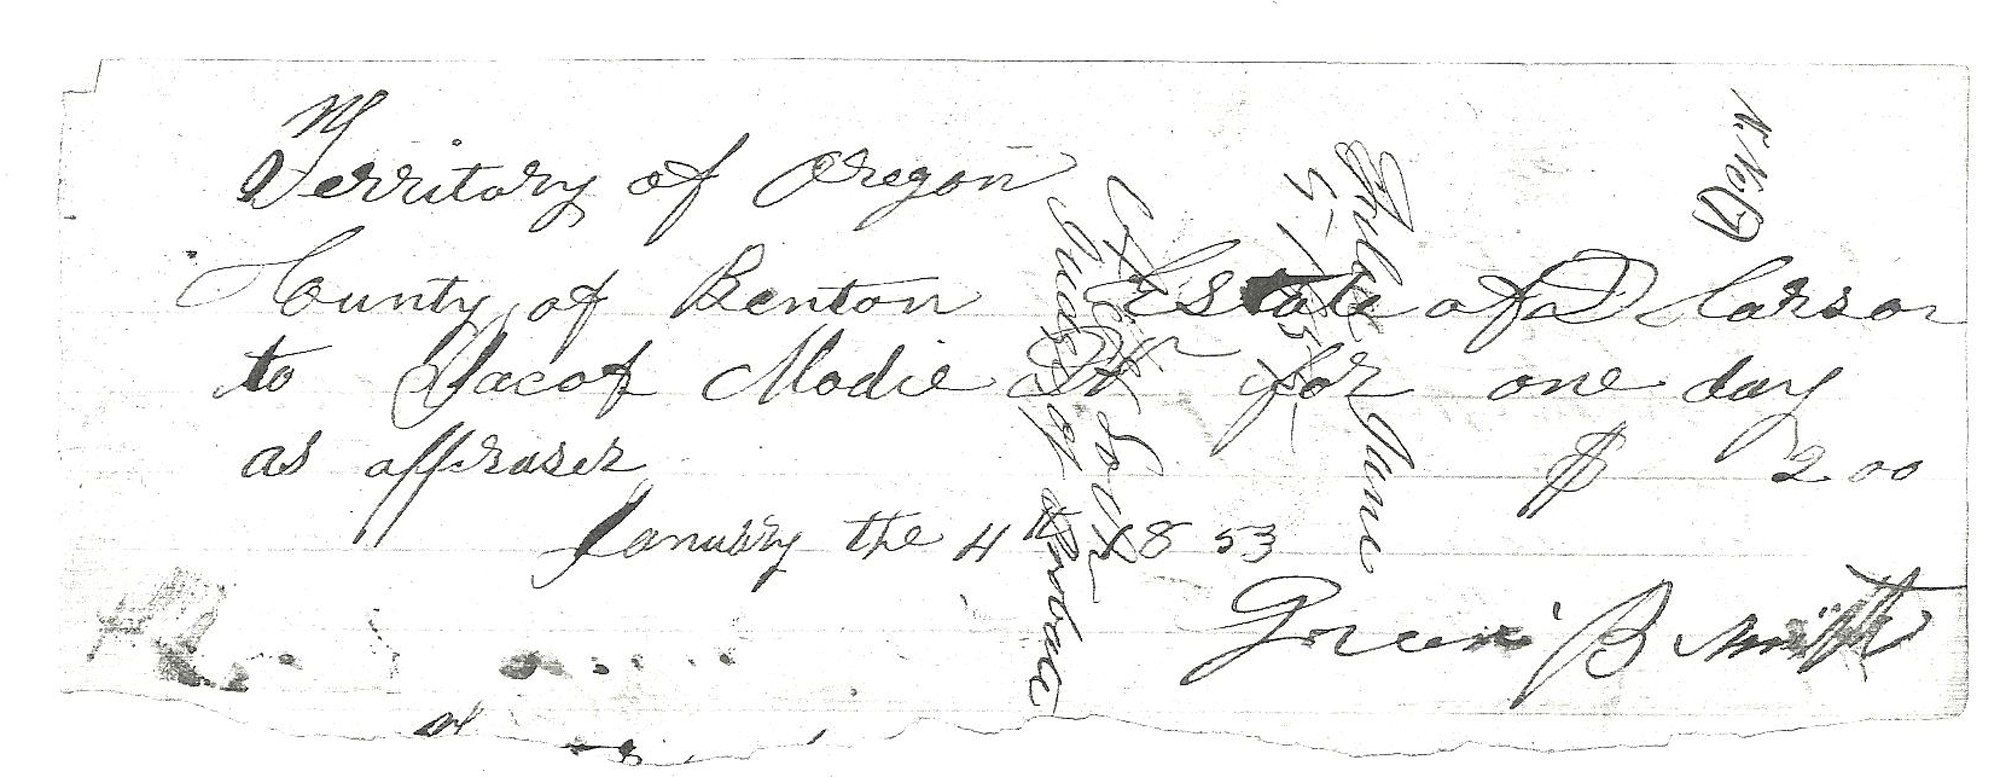 Territory of Oregon
County of Benton Estate of D Carson
to Jacof Modie Dr for one day
as affraser $ 2 00
January the 4 th 1853
Green B Smith
Filed June
Judge of Probate